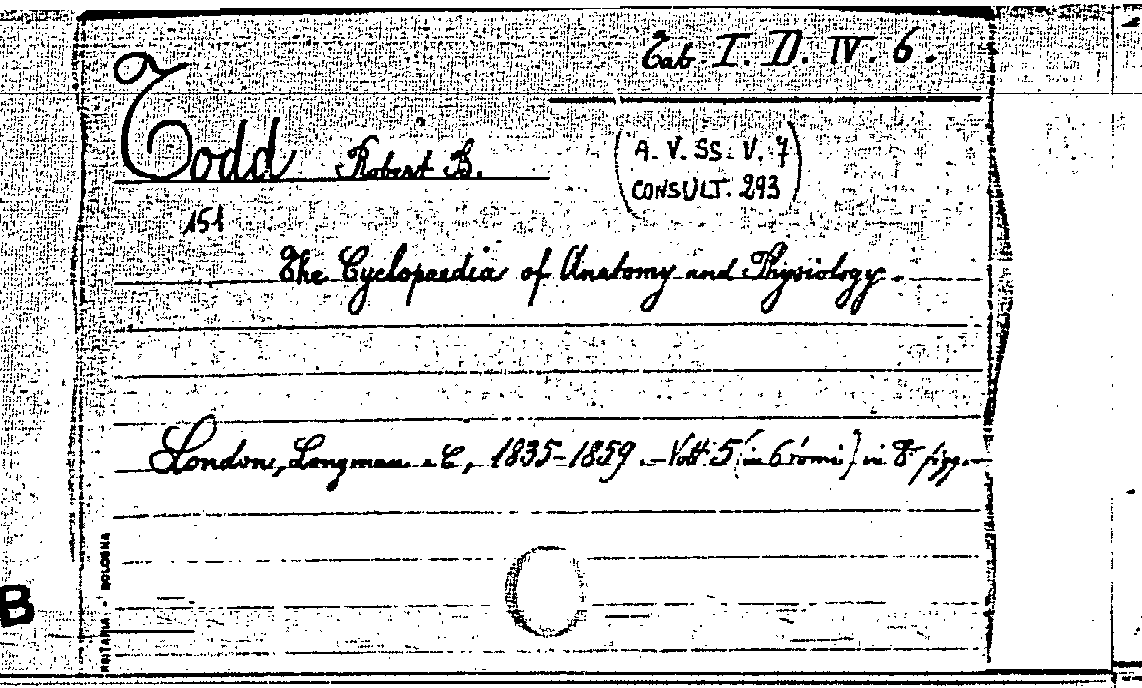 Tab. I. D. IV. 6.
Todd Robert B.
(A. V. SS. V. 7
CONSULT. 293)
154
The Cyclopaedia of Anatomy and Physiology.
London, Longman e C, 1835-1859. Voll. 5 (in 6 tomi) in 8° figg.
BOLOGNA
B